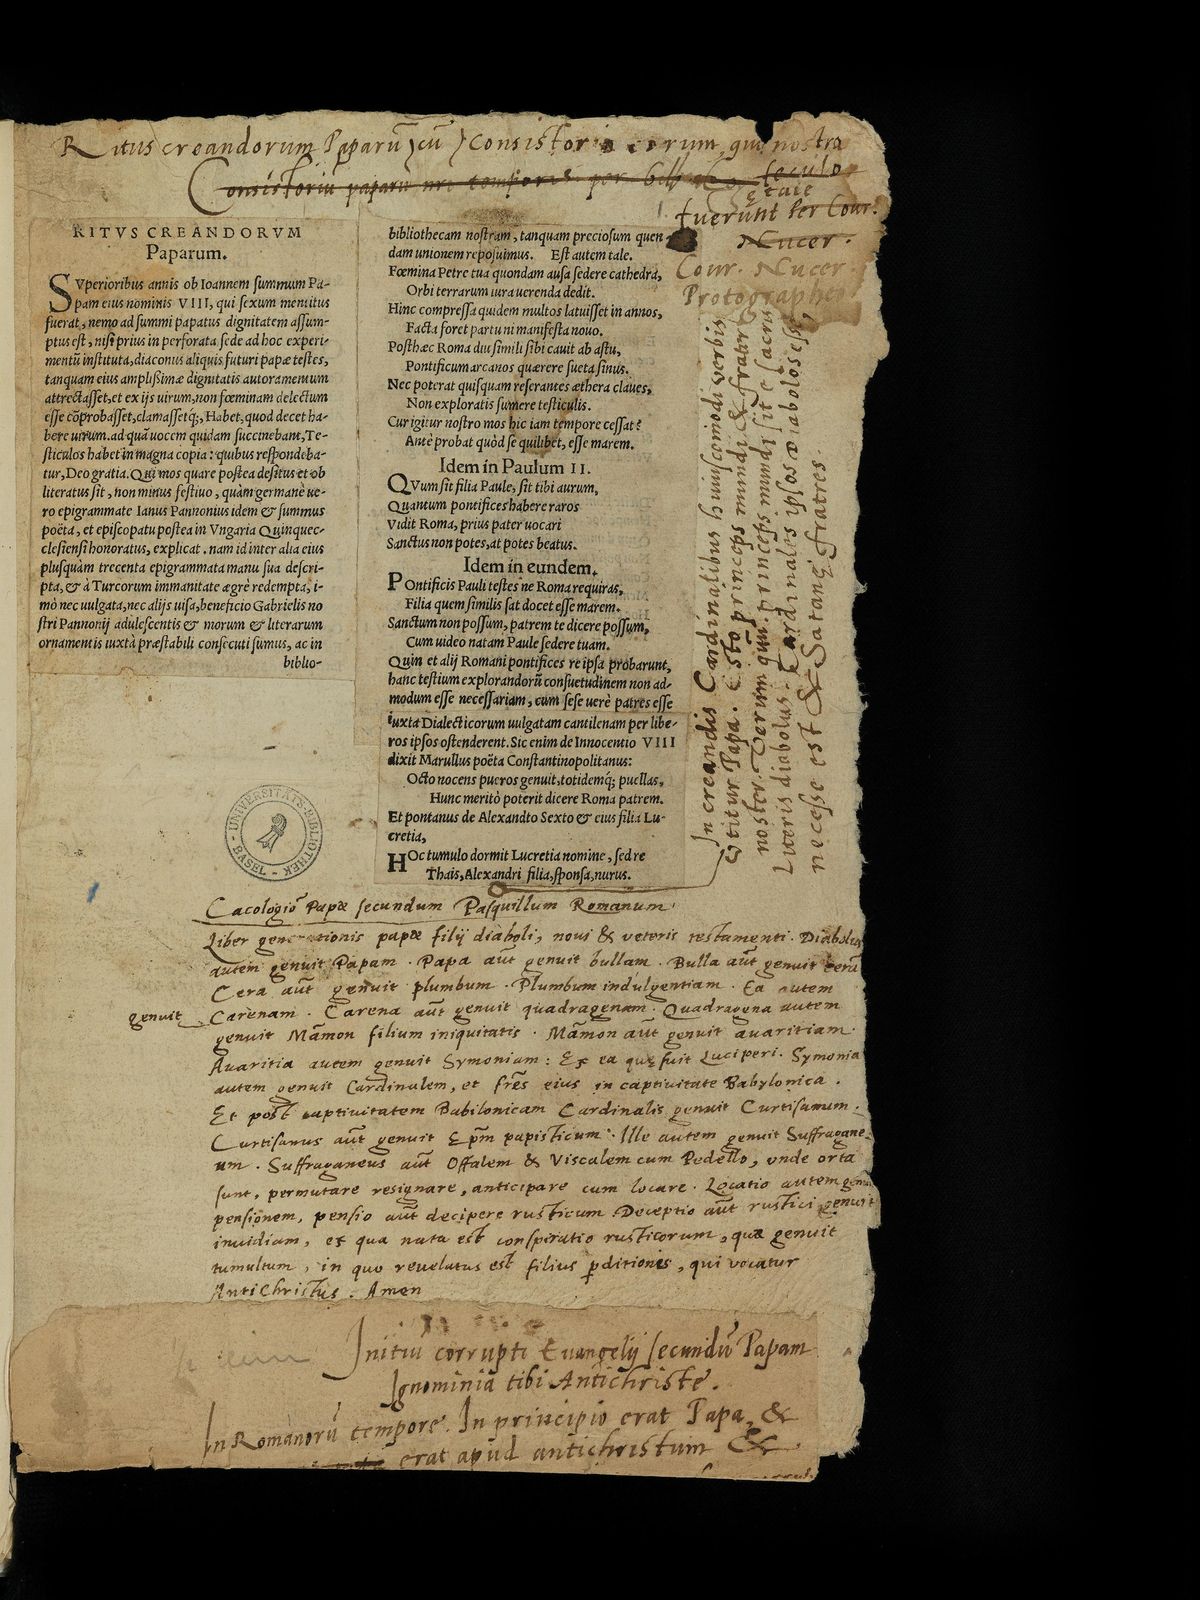 Ritus creandorum Paparū cū Consistor eorum qui nostra
Consistoriū paparū nrī temporis per
seculo
ętate
fuerunt per Cour.
Nucer.
Cour. Nucer.
Protographeo
RITVS CREANDORVM
Paparum.
SVperioribus annis ob Ioannem summum Pa-
pam eius nominis VIII, qui sexum mentitus
fuerat, nemo ad summi papatus dignitatem assum-
ptus est, nisi prius in perforata sede ad hoc experi-
mentū instituta, diaconus aliquis futuri papæ testes,
tanquam eius amplißimæ dignitatis autoramentum
attrectasset, et ex ijs uirum, non fœminam delectum
esse cōprobasset, clamassetq;, Habet, quod decet ha-
bere uirum. ad quā uocem quidam succinebant, Te-
sticulos habet in magna copia: quibus respondeba-
tur, Deo gratia. Qui mos quare postea desitus et ob
literatus sit, non minus festiuo, quàm germanè ue-
ro epigrammate Ianus Pannonius idem & summus
poëta, et episcopatu postea in Vngaria Quinquec-
clesiensi honoratus, explicat. nam id inter alia eius
plusquàm trecenta epigrammata manu sua descri-
pta, & à Turcorum immanitate ægrè redempta, i-
mò nec uulgata, nec alijs uisa, beneficio Gabrielis no
stri Pannonij adulescentis & morum & literarum
ornamentis iuxtà præstabili consecuti sumus, ac in
biblio-
bibliothecam nostram, tanquam preciosum quen
dam unionem reposuimus. Est autem tale.
Fœmina Petre tua quondam ausa sedere cathedra,
Orbi terrarum iura uerenda dedit.
Hinc compressa quidem multos latuisset in annos,
Facta foret partu ni manifesta nouo.
Posthæc Roma diu simili sibi cauit ab astu,
Pontificum arcanos quærere sueta sinus.
Nec poterat quisquam reserantes æthera claues,
Non exploratis sumere testiculis.
Cur igitur nostro mos hic iam tempore cessat?
Antè probat quòd se quilibet, esse marem.
Idem in Paulum II.
QVum sit filia Paule, sit tibi aurum,
Quantum pontifices habere raros
Vidit Roma, prius pater uocari
Sanctus non potes, at potes beatus.
Idem in eundem.
POntificis Pauli testes ne Roma requiras,
Filia quem similis sat docet esse marem.
Sanctum non possum, patrem te dicere possum,
Cum uideo natam Paule sedere tuam.
Quin et alij Romani pontifices re ipsa probarunt,
hanc testium explorandorū consuetudinem non ad-
modum esse necessariam, cum sese uerè patres esse
iuxta Dialecticorum uulgatam cantilenam per libe-
ros ipsos ostenderent. Sic enim de Innocentio VIII
dixit Marullus poëta Constantinopolitanus:
Octo nocens pueros genuit, totidemq́; puellas,
Hunc meritò poterit dicere Roma patrem.
Et pontanus de Alexandto Sexto & eius filia Lu-
cretia,
HOc tumulo dormit Lucretia nomine, sed re
Thais, Alexandri filia, sponsa, nurus.
In creandis Cardinalibus huiuscemodi verbis
Vtitur Papa. Esto princeps mundi & frater
noster. Verum quū princeps mundi sit é sacris
Literis diabolus. Cardinales ipsos diabolos esse,
necesse est & Satanę fratres.
UNIVERSITÄTS-BIBLIOTHEK
BASEL
Cacologiō Papæ secundum Pasquillum Romanum
Liber generationis papæ filij diaboli, noui & veteris testamenti. Diabolus
autem genuit Papam. Papa aūt genuit bullam. Bulla aūt genuit cerā
Cera aūt genuit plumbum. Plumbum indulgentiam. Ea autem
genuit Carenam. Carena aūt genuit quadragenam. Quadragena autem
genuit Māmon filium iniquitatis. Māmon aūt genuit auaritiam.
Auaritia autem genuit Symoniam: Ex ea quę fuit Luciperi. Symonia
autem genuit Cardinalem, et frēs eius in captivitate Babylonica.
Et post captivitatem Babilonicam Cardinalis genuit Curtisanum.
Curtisanus aūt genuit Epm papisticum. Ille autem genuit Suffragane-
um. Suffraganeus aūt Offalem & Viscalem cum Pedello, unde orta
sunt, permutare resignare, anticipare cum locare. Locatio autem genuit
pensionem, pensio aūt decipere rusticum Deceptio aūt rustici genuit
inuidiam, ex qua nata est conspiratio rusticorum, quæ genuit
tumultum, in quo reuelatus est filius pditionis, qui vocatur
AntiChristus. Amen
Initiū corrupti Euangelij secundū Papam
Ignominia tibi Antichriste.
In Romanorū tempore. In principio erat Papa, &
erat apud antichristum &